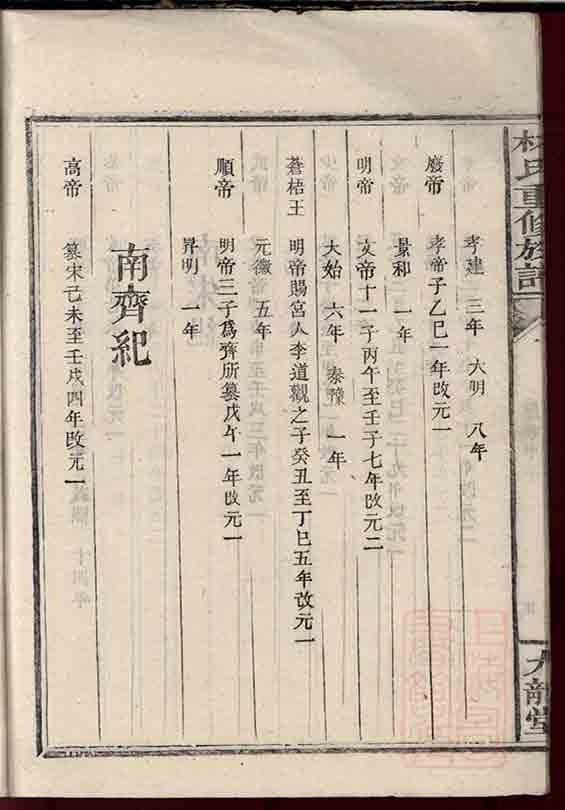 林氏重修族譜
九龍堂
孝建 三年 六明 八年
廢帝 孝帝子乙巳一年改元一
景和 一年
明帝 文帝十一子丙午至壬子七年改元二
大始 六年 泰豫 一年
蒼梧王 明帝賜宮人李道觀之子癸丑至丁巳五年改元一
元徽 五年
順帝 明帝三子爲齊所篡戊午一年改元一
昇明 一年
南齊紀
高帝 篡宋己未至壬戌四年改元一